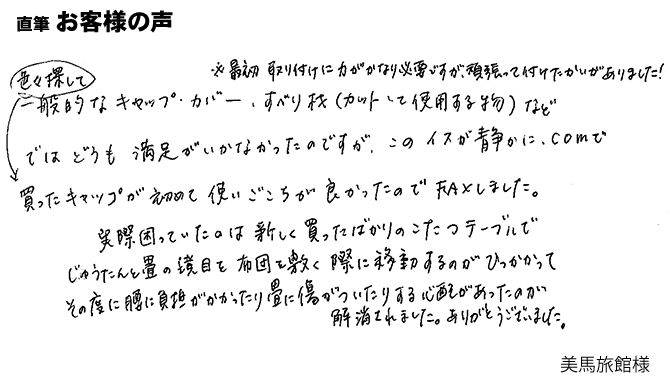 直筆 お客様の声
※最初取り付けに力がかなり必要ですが、頑張って付けたかいがありました!
色々探して
一般的なキャップ・カバー、すべり材(カットして使用する物)など
ではどうも満足がいかなかったのですが、このイスが静かに.comで
買ったキャップが初めて使いごこちが良かったのでFAXしました。
実際困っていたのは新しく買ったばかりのこたつテーブルで
じゅうたんと畳の境目を布団を敷く際に移動するのがひっかかって
その度に腰に負担がかかったり畳に傷がついたりする心配があったのが
解消されました。ありがとうございました。
美馬旅館様